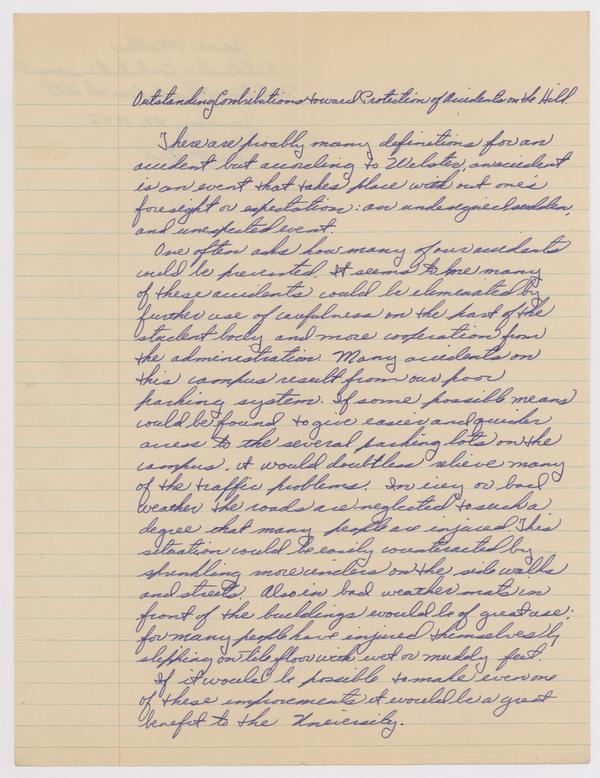 Outstanding Contributions toward Protection of Accidents on the Hill.
There are proably many definitions for an
accident but according to Webster, an accident
is an event that takes place with out one's
foresight or expectation: an undesigned sudden,
and unexpected event.
One often asks how many of our accidents
could be prevented. It seems to me many
of these accidents could be elimenated by
further use of carefulness on the part of the
student body and more cooperation from
the administration. Many accidents on
this campus result from our poor
parking system. If some possible means
could be found to give easier and quicker
access to the several parking lots on the
campus, it would doubtless relieve many
of the traffic problems. In icey or bad
weather the roads are neglected to such a
degree that many people are injured. This
setuation could be easily counteracted by
sprinkling more cinders on the side walks
and streets. Also in bad weather mats in
front of the buildings would be of great use;
for many people have injured themselves by
slipping on tile floor with wet or muddy feet.
If it would be possible to make even one
of these improvements it would be a great
benefit to the University.